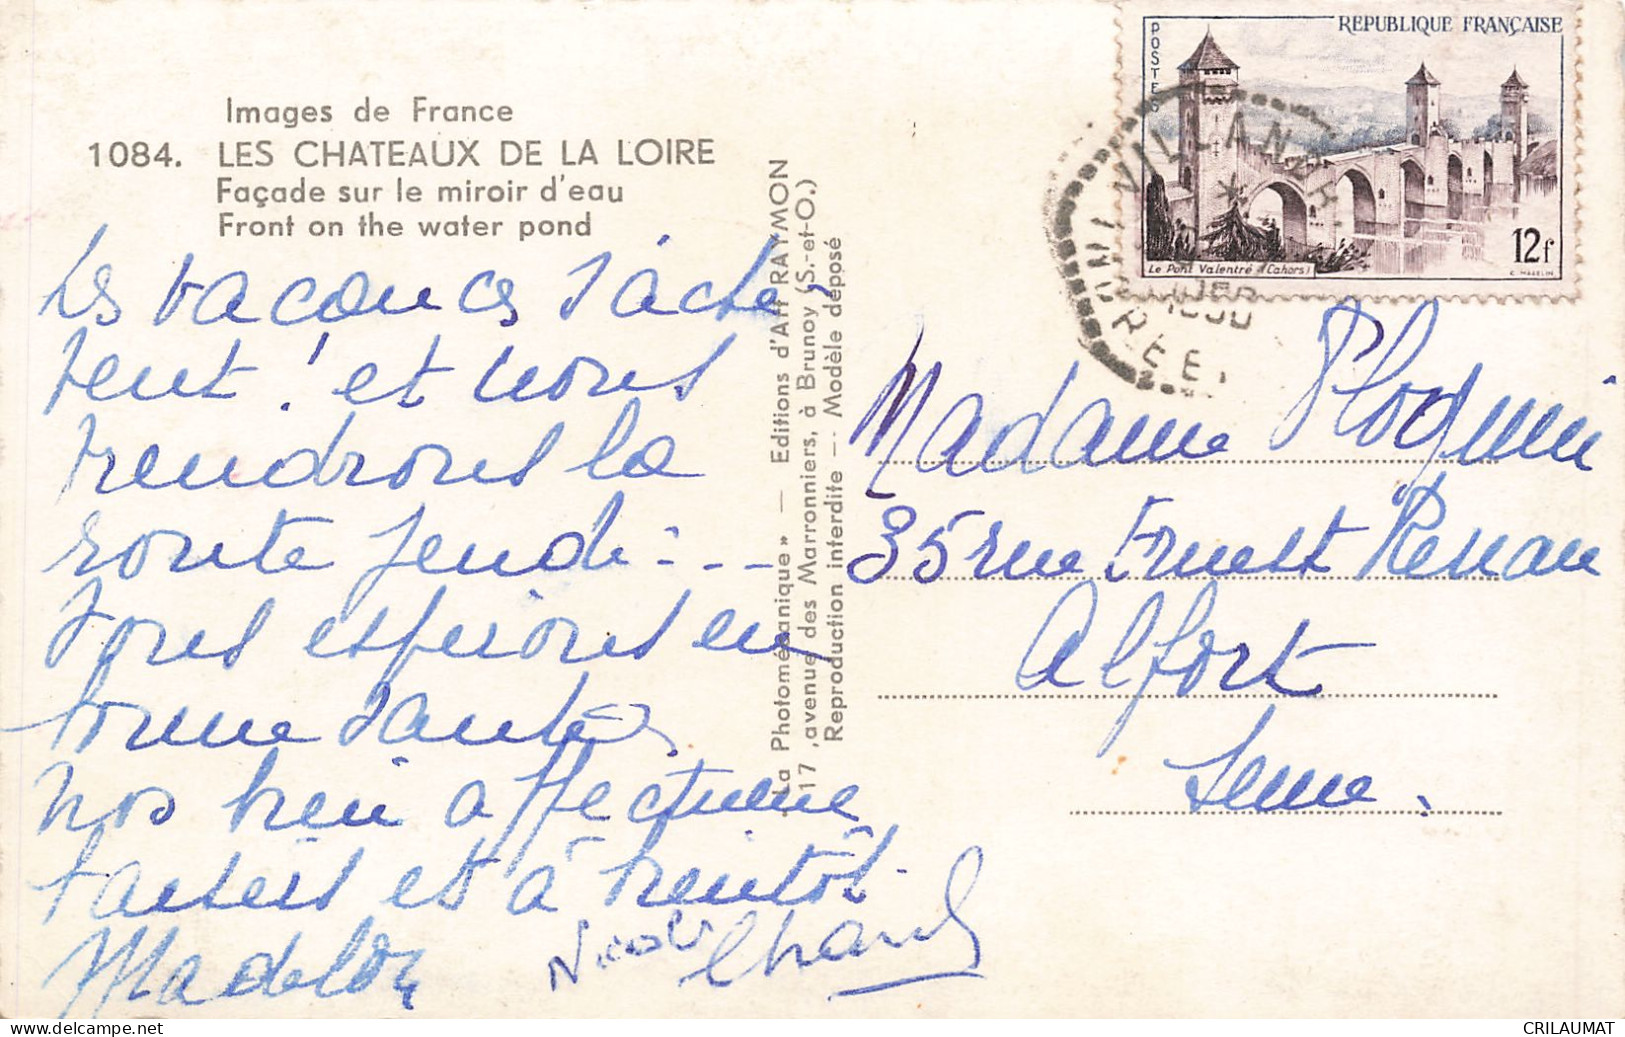 Images de France
1084. LES CHATEAUX DE LA LOIRE
Façade sur le miroir d'eau
Front on the water pond
Les vacances s'achè-
vent ! et nous
prendrons la
route jeudi ...
Vous espérons en
bonne santé
Nos bien affectueux
baisers et à bientôt.
Madelon
Nicole
« La Photomécanique » — Editions d'Art RAYMON
17, avenue des Marronniers, à Brunoy (S.-et-O.)
Reproduction interdite — Modèle déposé
POSTES
REPUBLIQUE FRANÇAISE
Le Pont Valentré (Cahors)
12f
Madame
35 rue Ernest Renan
Alfort
Seine.
CRILAUMAT